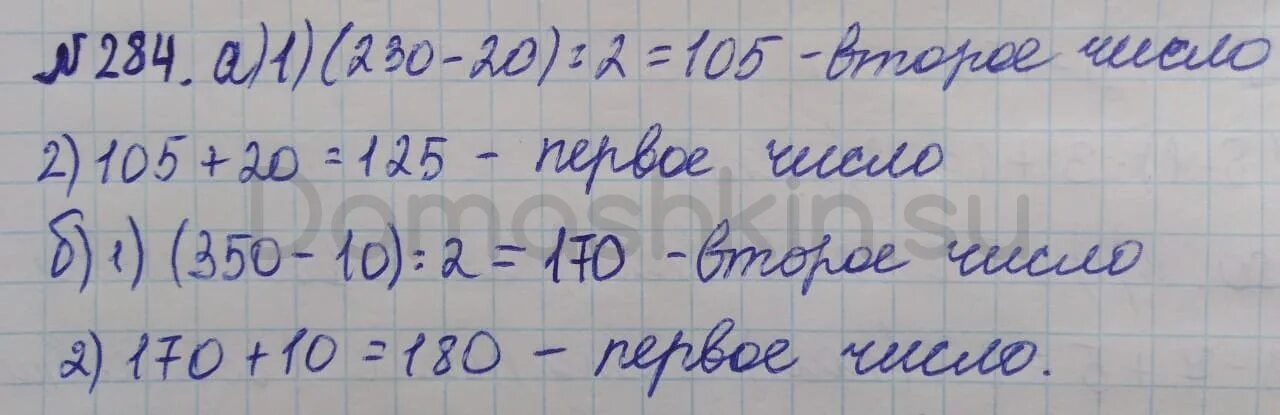 №284. а) 1) (230-20):2=105 -второе число
2) 105+20=125 - первое число
Domoshkin.su
б) 1) (350-10):2=170 -второе число
2) 170+10=180 - первое число.